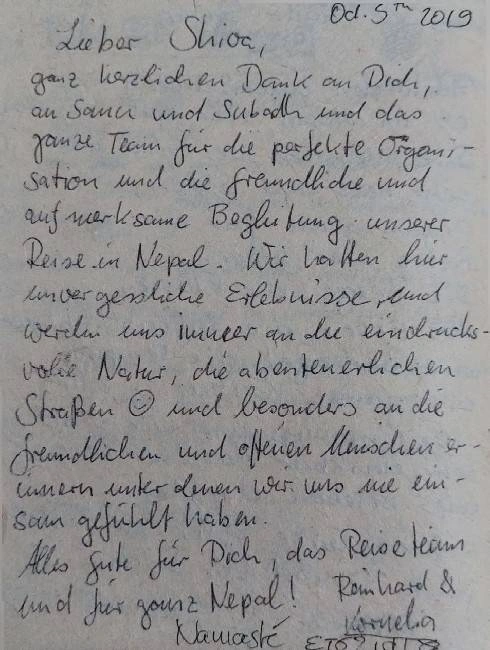 Oct. 5th 2019
Lieber Shiva,
ganz herzlichen Dank an Dich,
an Sanu und Subodh und das
ganze Team für die perfekte Organi-
sation und die freundliche und
aufmerksame Begleitung unserer
Reise in Nepal. Wir hatten hier
unvergessliche Erlebnisse, und
werden uns immer an die eindrucks-
volle Natur, die abenteuerlichen
Straßen ☺ und besonders an die
freundlichen und offenen Menschen er-
innern unter denen wir uns nie ein-
sam gefühlt haben.
Alles gute für Dich, das Reiseteam
und für ganz Nepal! Reinhard &
Namasté Kornelia